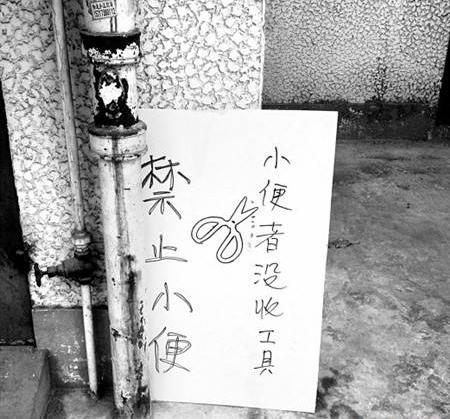 禁止小便
小便者没收工具